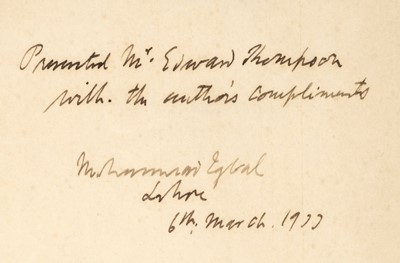 Presented Mr. Edward Thompson
with the author's compliments
Mohammad Iqbal
Lahore
6th. March. 1933